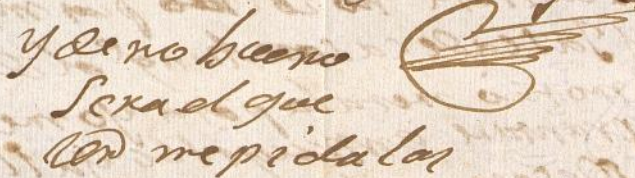 y de no bueno
sera el que
Vm me pida las